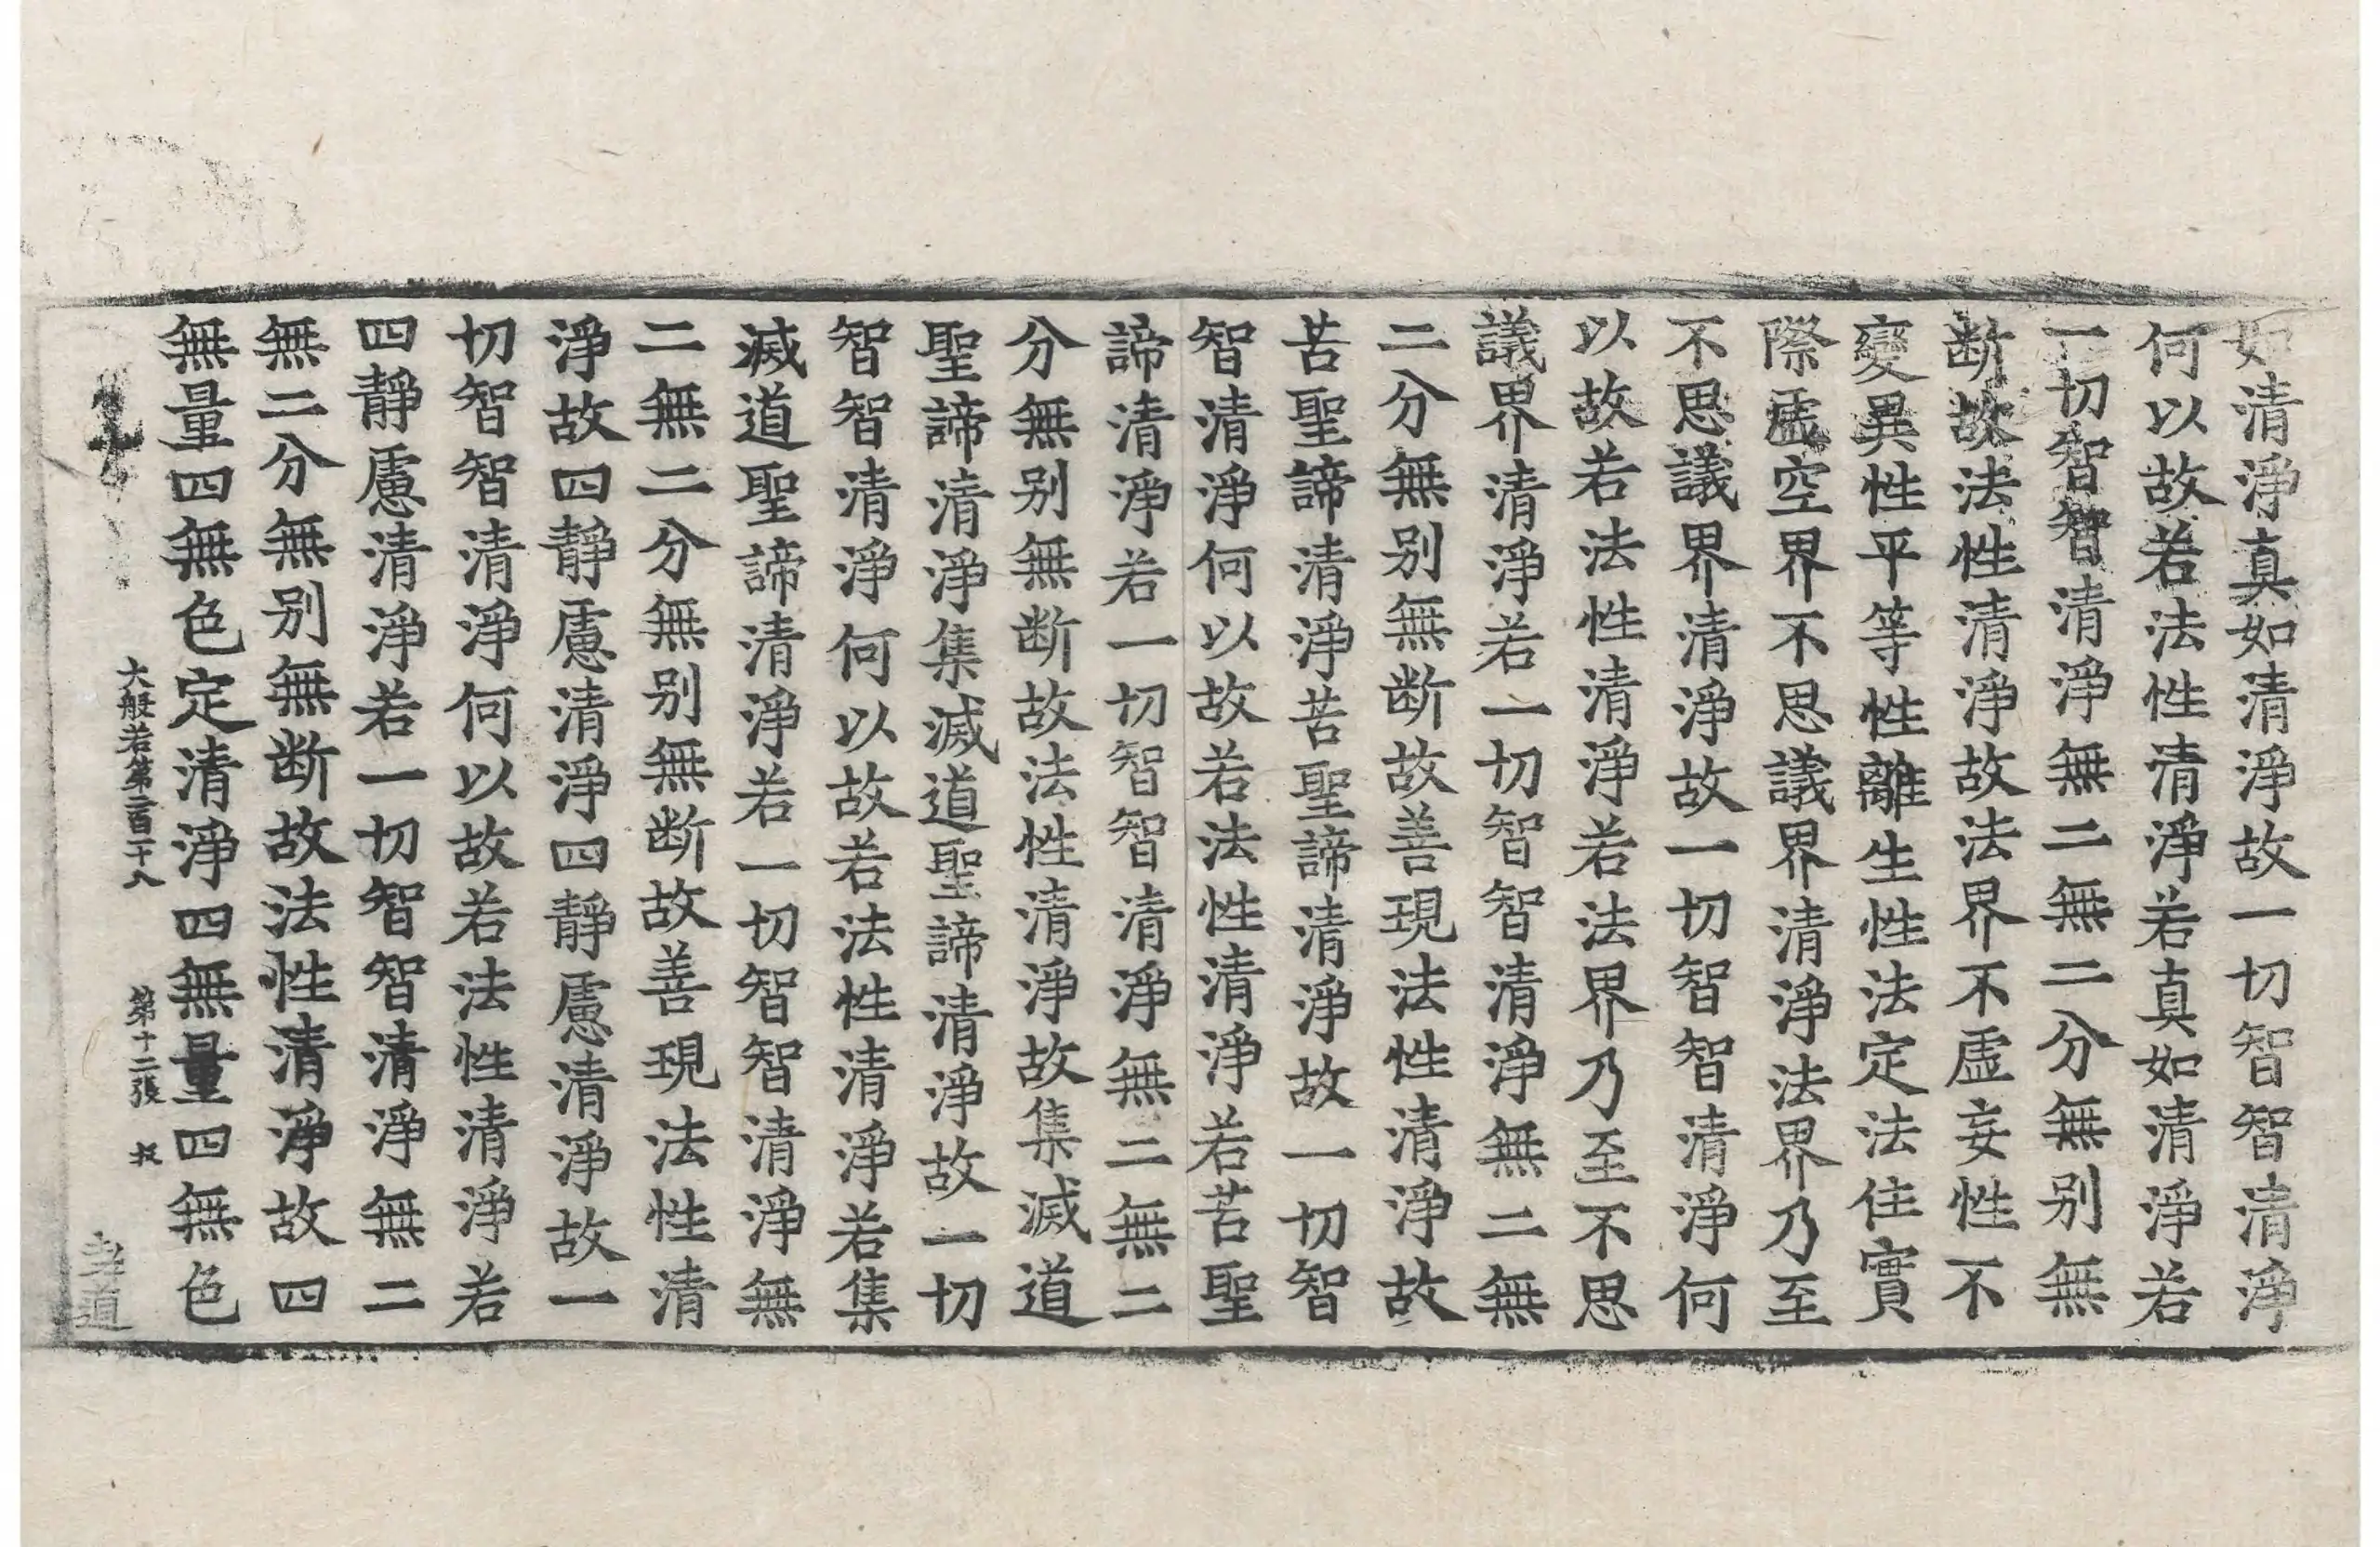 如清淨真如清淨故一切智智清淨
何以故若法性清淨若真如清淨若
一切智智清淨無二無二分無别無
断故法性清淨故法界不虛妄性不
變異性平等性離生性法定法住實
際虛空界不思議界清淨法界乃至
不思議界清淨故一切智智清淨何
以故若法性清淨若法界乃至不思
議界清淨若一切智智清淨無二無
二分無别無断故善現法性清淨故
苦聖諦清淨苦聖諦清淨故一切智
智清淨何以故若法性清淨若苦聖
諦清淨若一切智智清淨無二無二
分無别無断故法性清淨故集滅道
聖諦清淨集滅道聖諦清淨故一切
智智清淨何以故若法性清淨若集
滅道聖諦清淨若一切智智清淨無
二無二分無别無断故善現法性清
淨故四靜慮清淨四靜慮清淨故一
切智智清淨何以故若法性清淨若
四靜慮清淨若一切智智清淨無二
無二分無别無断故法性清淨故四
無量四無色定清淨四無量四無色
大般若第二百二十八 第十二張
道